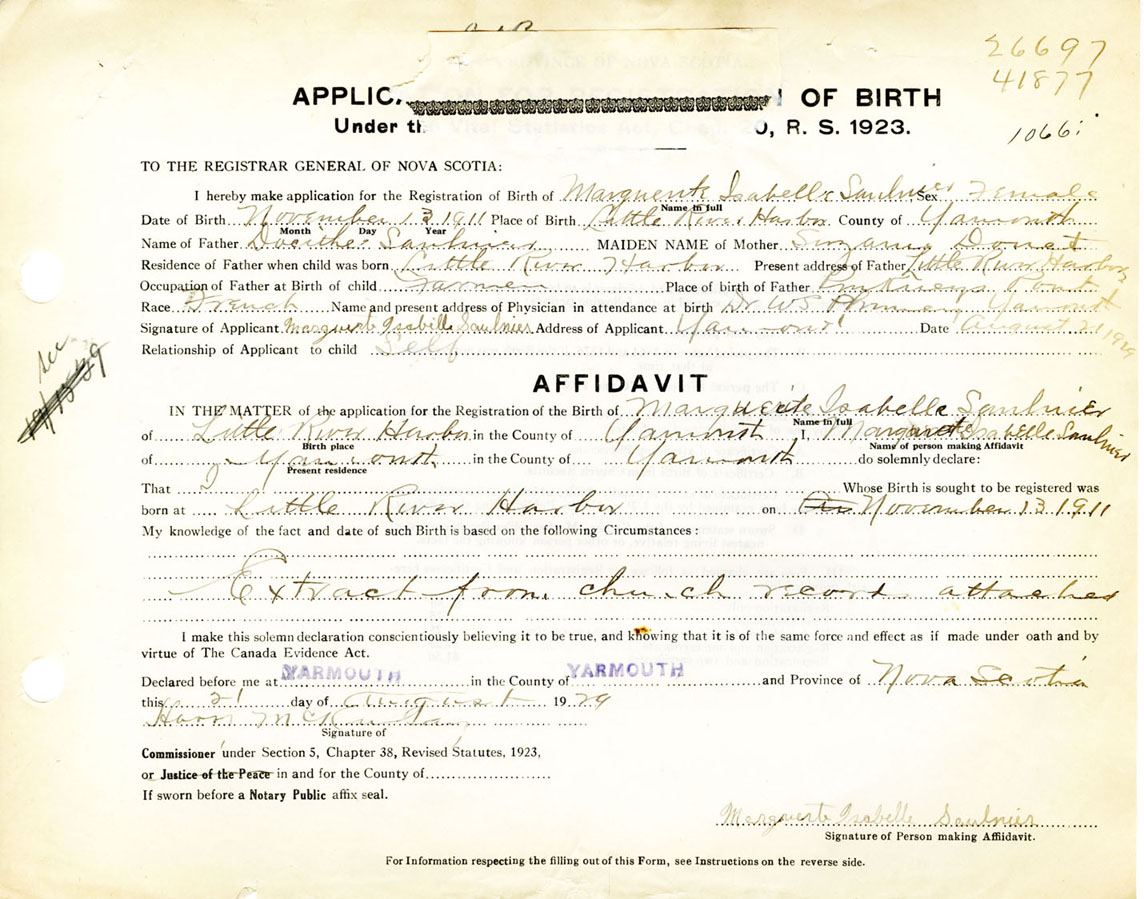 26697
41877
1066
APPLIC OF BIRTH
Under th R. S. 1923.
TO THE REGISTRAR GENERAL OF NOVA SCOTIA:
I hereby make application for the Registration of Birth of Marguerite Isabelle Saulnier Sex Female
Name in full
Date of Birth November 13 1911 Place of Birth Little River Harbor County of Yarmouth
Month Day Year
Name of Father Saulnier MAIDEN NAME of Mother
Residence of Father when child was born Little River Harbor Present address of Father Little River Harbor
Occupation of Father at Birth of child Place of birth of Father
Race French Name and present address of Physician in attendance at birth Dr W S Yarmouth
Signature of Applicant Marguerite Isabelle Saulnier Address of Applicant Yarmouth Date August 21 1929
Relationship of Applicant to child Self
AFFIDAVIT
IN THE MATTER of the application for the Registration of the Birth of Marguerite Isabelle Saulnier
Name in full
of Little River Harbor in the County of Yarmouth I, Marguerite Isabelle Saulnier
Birth place Name of person making Affidavit
of Yarmouth in the County of Yarmouth do solemnly declare:
Present residence
That Whose Birth is sought to be registered was
born at Little River Harbor on November 13 1911
My knowledge of the fact and date of such Birth is based on the following Circumstances:
Extract from church records attached
I make this solemn declaration conscientiously believing it to be true, and knowing that it is of the same force and effect as if made under oath and by
virtue of The Canada Evidence Act.
Declared before me at YARMOUTH in the County of YARMOUTH and Province of Nova Scotia
this 21 day of August 1929
Signature of
Commissioner under Section 5, Chapter 38, Revised Statutes, 1923,
or Justice of the Peace in and for the County of
If sworn before a Notary Public affix seal.
Marguerite Isabelle Saulnier
Signature of Person making Affidavit.
For Information respecting the filling out of this Form, see Instructions on the reverse side.